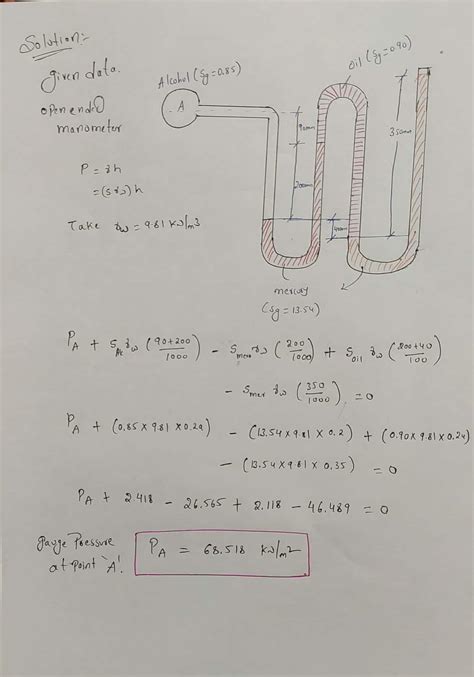 Solution:-
given data.
open ended
manometer
P = γh
= (Sγω) h
Take γω = 9.81 kω/m3
Alcohol (Sg=0.85)
A
oil (Sg=0.90)
90mm
200mm
350mm
40mm
mercury
(Sg=13.54)
PA + SAl γω (90+200/1000) - Smerc γω (200/1000) + Soil γω (200+40/100)
- Smer γω (350/1000) = 0
PA + (0.85 x 9.81 x 0.29) - (13.54 x 9.81 x 0.2) + (0.90 x 9.81 x 0.24)
- (13.54 x 9.81 x 0.35) = 0
PA + 2.418 - 26.565 + 2.118 - 46.489 = 0
gauge Pressure
at Point 'A'.
PA = 68.518 kω/m2